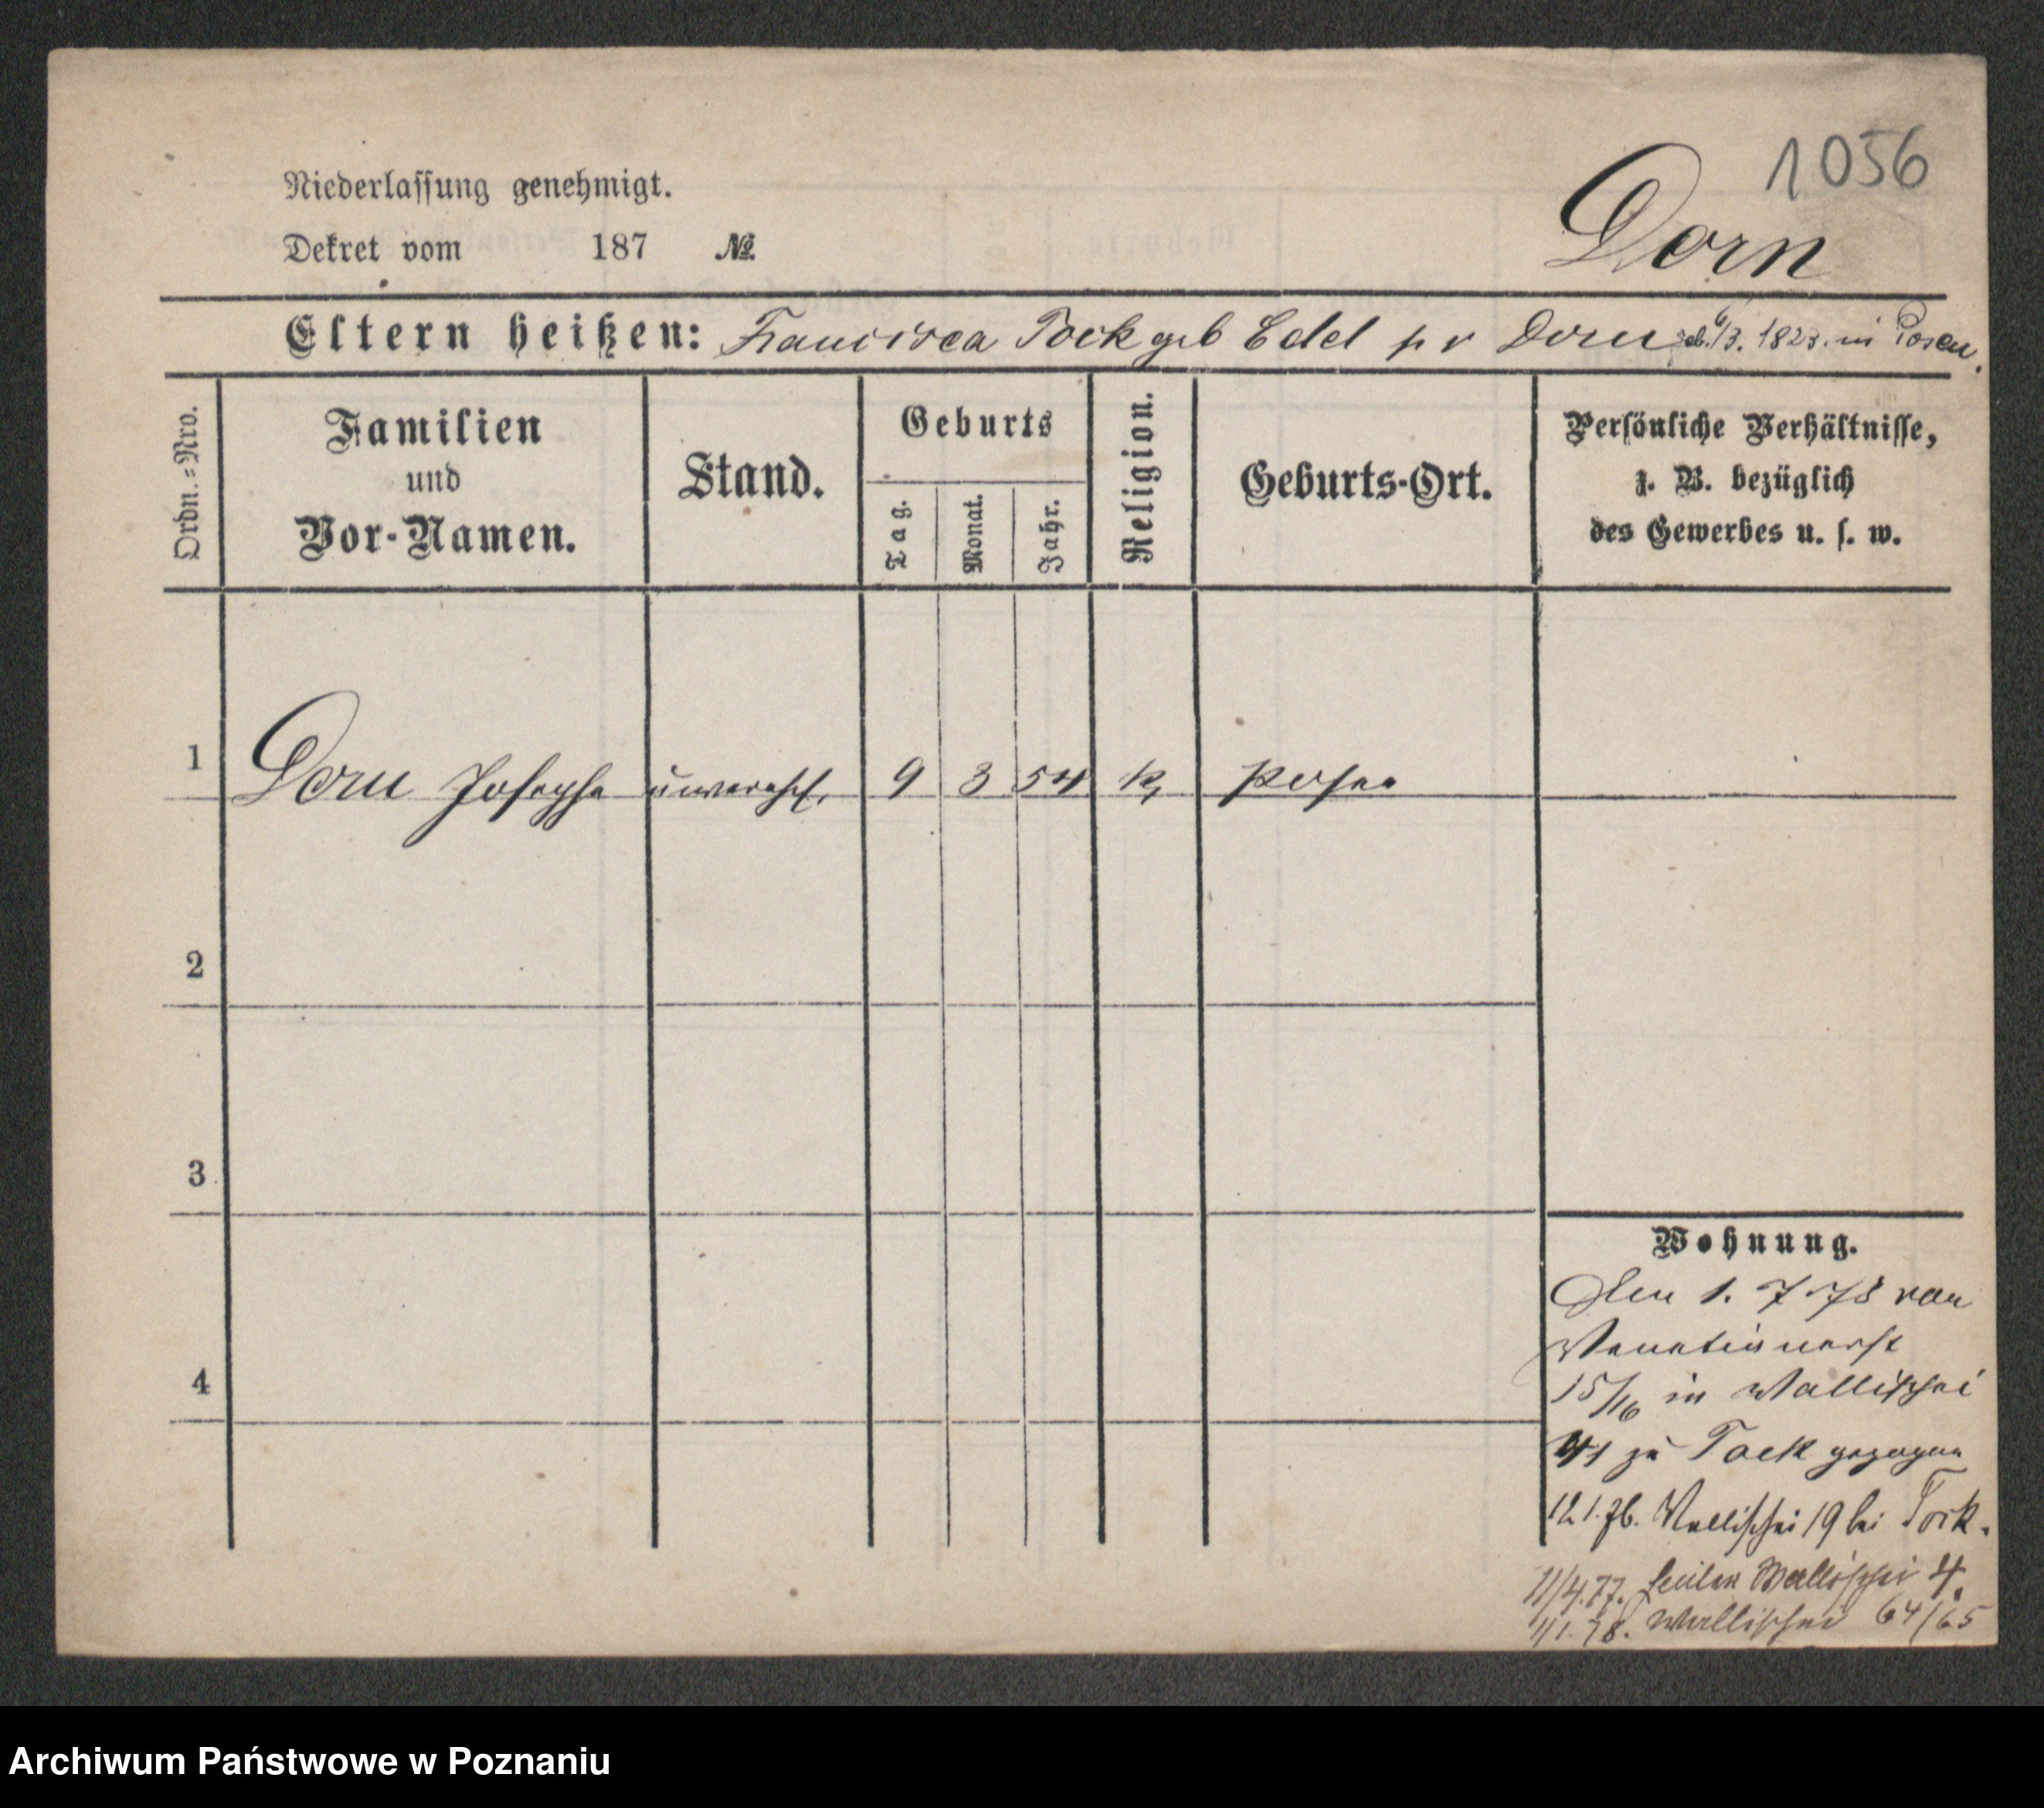 1056
Niederlassung genehmigt.
Dekret vom 187 №
Dorn
Eltern heißen: Francisca Tock geb Edel p v Dorn geb. 6/3. 1823. in Posen.
Ordn.=Nro.
Familien
und
Vor-Namen.
Stand.
Geburts
Tag.
Monat.
Jahr.
Religion.
Geburts-Ort.
Persönliche Verhältnisse,
z. B. bezüglich
des Gewerbes u. s. w.
1 Dorn Josepha unverehl. 9 3 54 k Posen
2
3
4
Wohnung.
Den 1. 7. 73 von
Venetianerst
15/16 in Wallischei
41 zu Tock gezogen
12.1.76. Wallischei 19 bei Tock.
11/4.77. Wallischei 4.
1/1.78. Wallischei 64/65
Archiwum Państwowe w Poznaniu